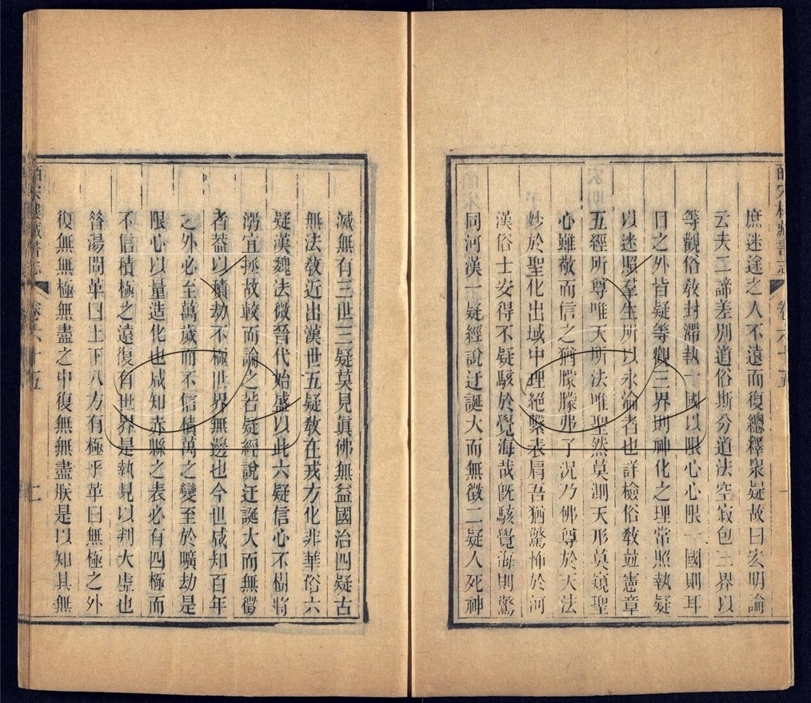 庶迷途之人不遠而復總釋衆疑故曰宏明論
云夫二諦差別道俗斯分道法空寂包三界以
等觀俗教封滯執一國以限心心限一國則耳
目之外皆疑等觀三界則神化之理常照執疑
以迷照羣生所以永淪者也詳檢俗敎並憲章
五經所尊唯天所法唯聖然莫測天形莫窺聖
心雖敬而信之猶矇矇弗了況乃佛尊於天法
妙於聖化出域中理絕繫表肩吾猶驚怖於河
漢俗士安得不疑駭於覺海哉旣駭覺海則驚
同河漢一疑經說迂誕大而無徵二疑人死神
滅無有三世三疑莫見眞佛無益國治四疑古
無法敎近出漢世五疑敎在戎方化非華俗六
疑漢魏法微晉代始盛以此六疑信心不樹將
溺宜拯故較而論之若疑經說迂誕大而無徵
者蓋以積劫不極世界無邊也今世咸知百年
之外必至萬歲而不信積萬之變至於曠劫是
限心以量造化也咸知赤縣之表必有四極而
不信積極之遠復有世界是執見以判大虛也
昝湯問革曰上下八方有極乎革曰無極之外
復無無極無盡之中復無無盡朕是以知其無
宋樓藏書志 卷六十五